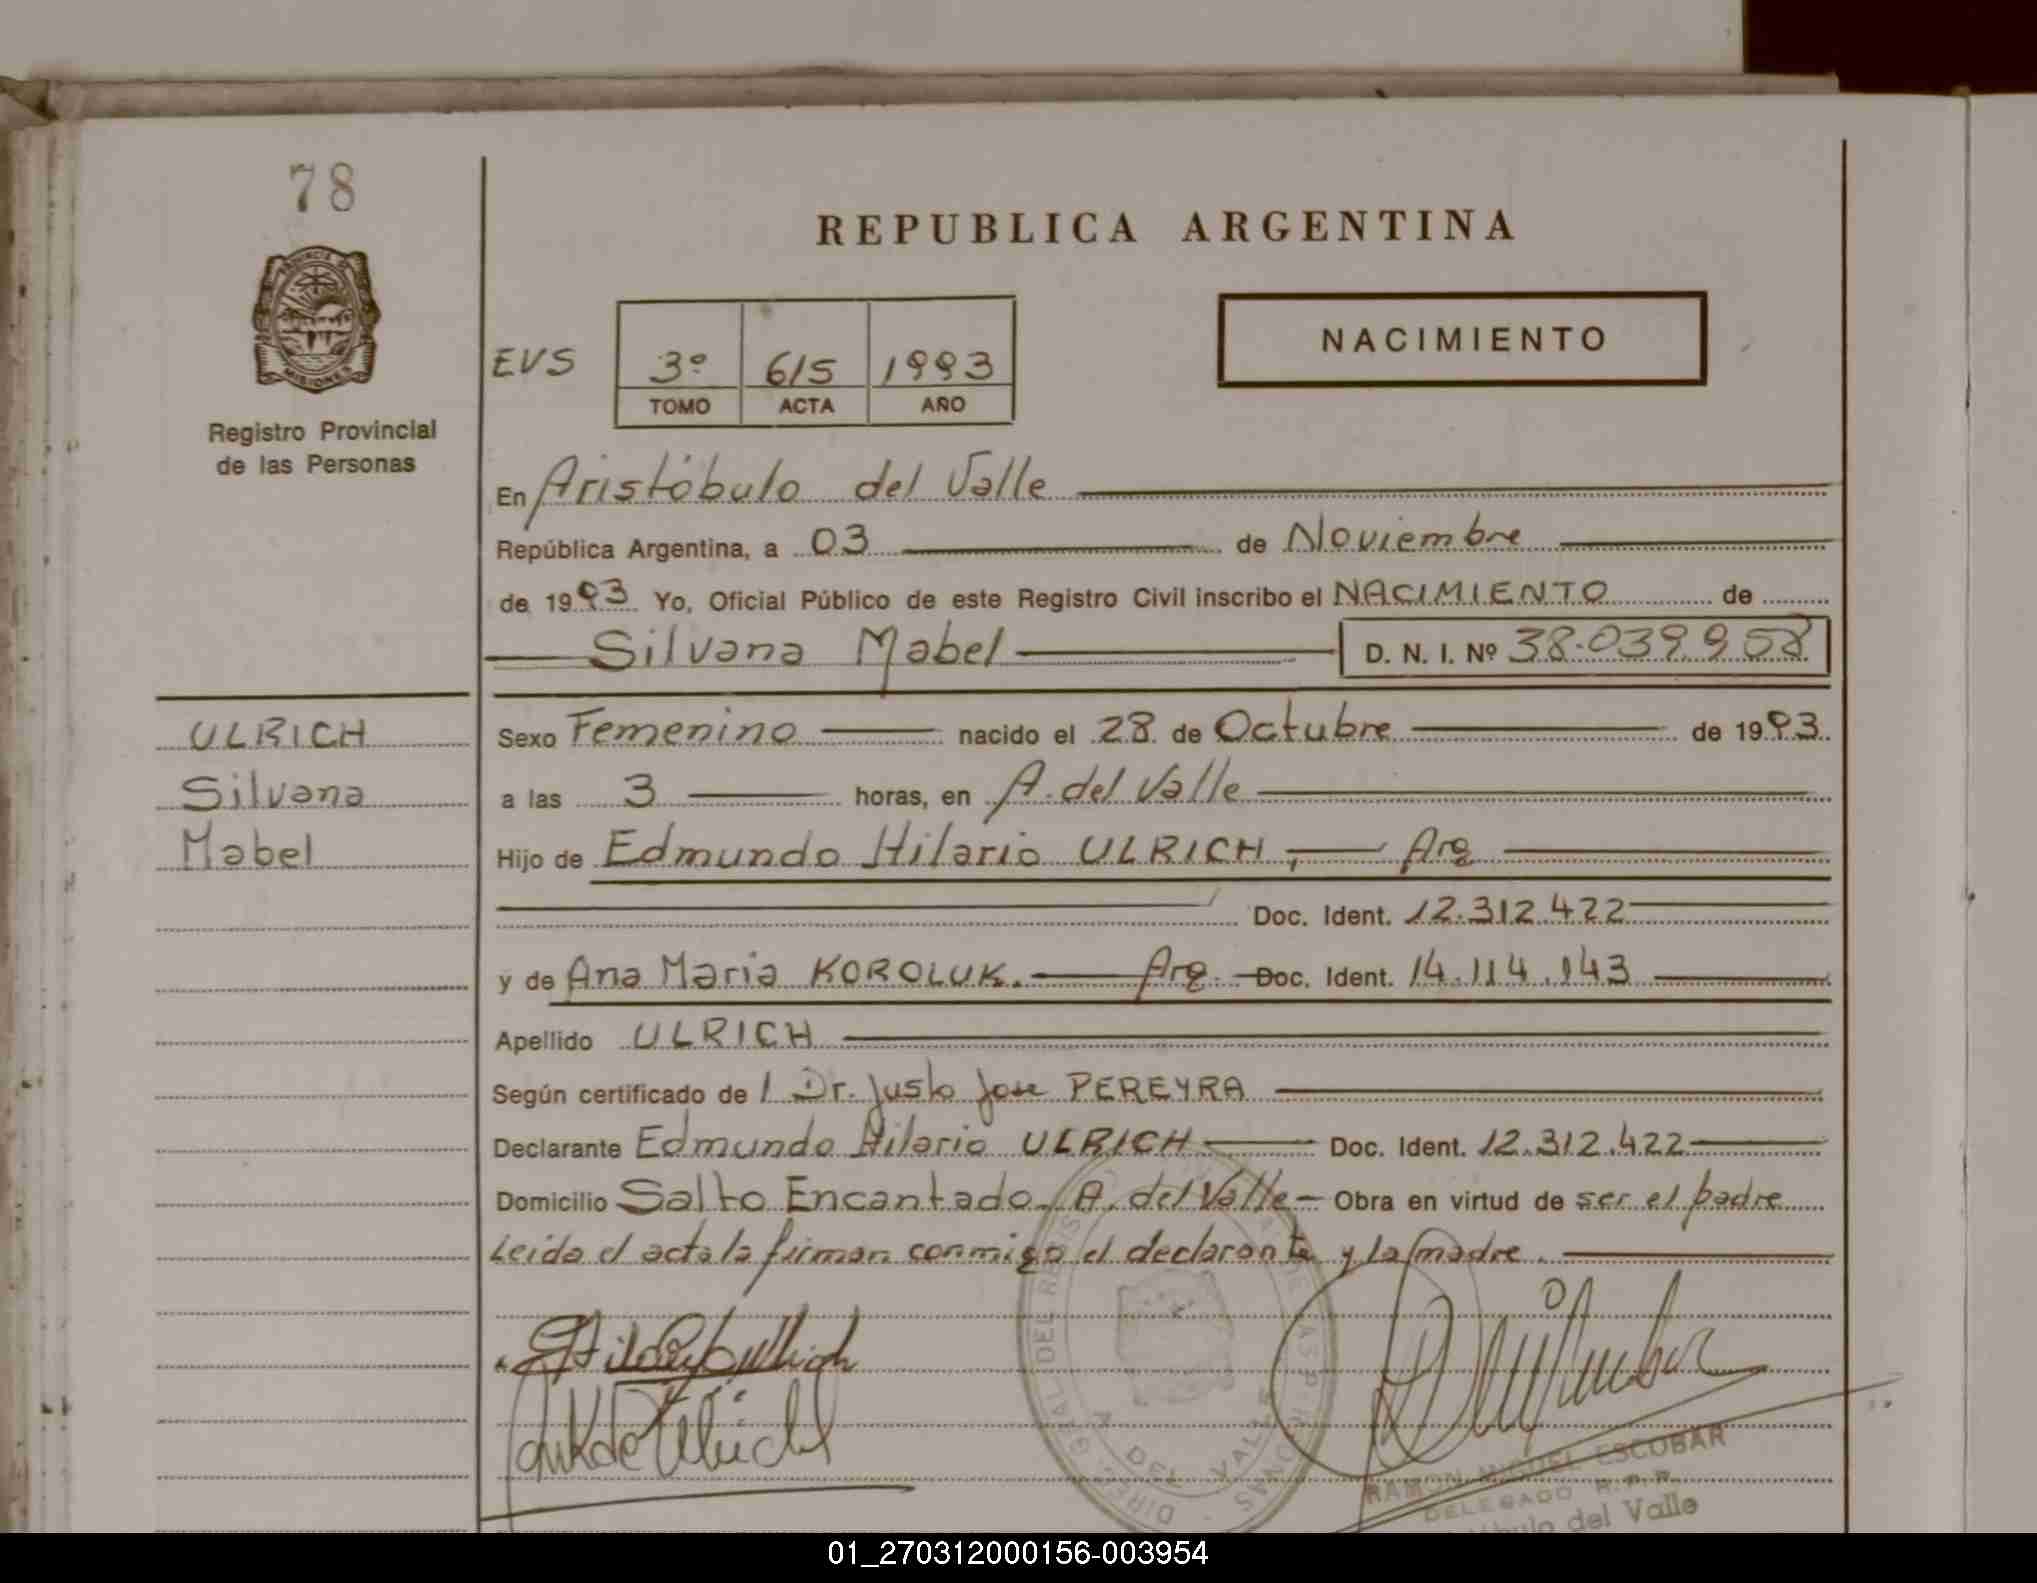 78
REPUBLICA ARGENTINA
PROVINCIA DE
MISIONES
Registro Provincial
de las Personas
NACIMIENTO
EVS
3º 615 1993
TOMO ACTA AÑO
En Aristóbulo del Valle
República Argentina, a 03 de Noviembre
de 1993 Yo, Oficial Público de este Registro Civil inscribo el NACIMIENTO de
Silvana Mabel D. N. I. Nº 38.039.958
ULRICH
Silvana
Mabel
Sexo Femenino nacido el 28 de Octubre de 1993
a las 3 horas, en A. del Valle
Hijo de Edmundo Hilario ULRICH, Arg
Doc. Ident. 12.312.422
y de Ana Maria KOROLUK. Arg. Doc. Ident. 14.114.143
Apellido ULRICH
Según certificado de l Dr. Justo Jose PEREYRA
Declarante Edmundo Hilario ULRICH Doc. Ident. 12.312.422
Domicilio Salto Encantado. A. del Valle Obra en virtud de ser el padre
Leida el acta la firman conmigo el declarante y la madre.
A. DEL VALLE
RAMON MIGUEL ESCOBAR
DELEGADO R. P. P.
del Valle
01_270312000156-003954